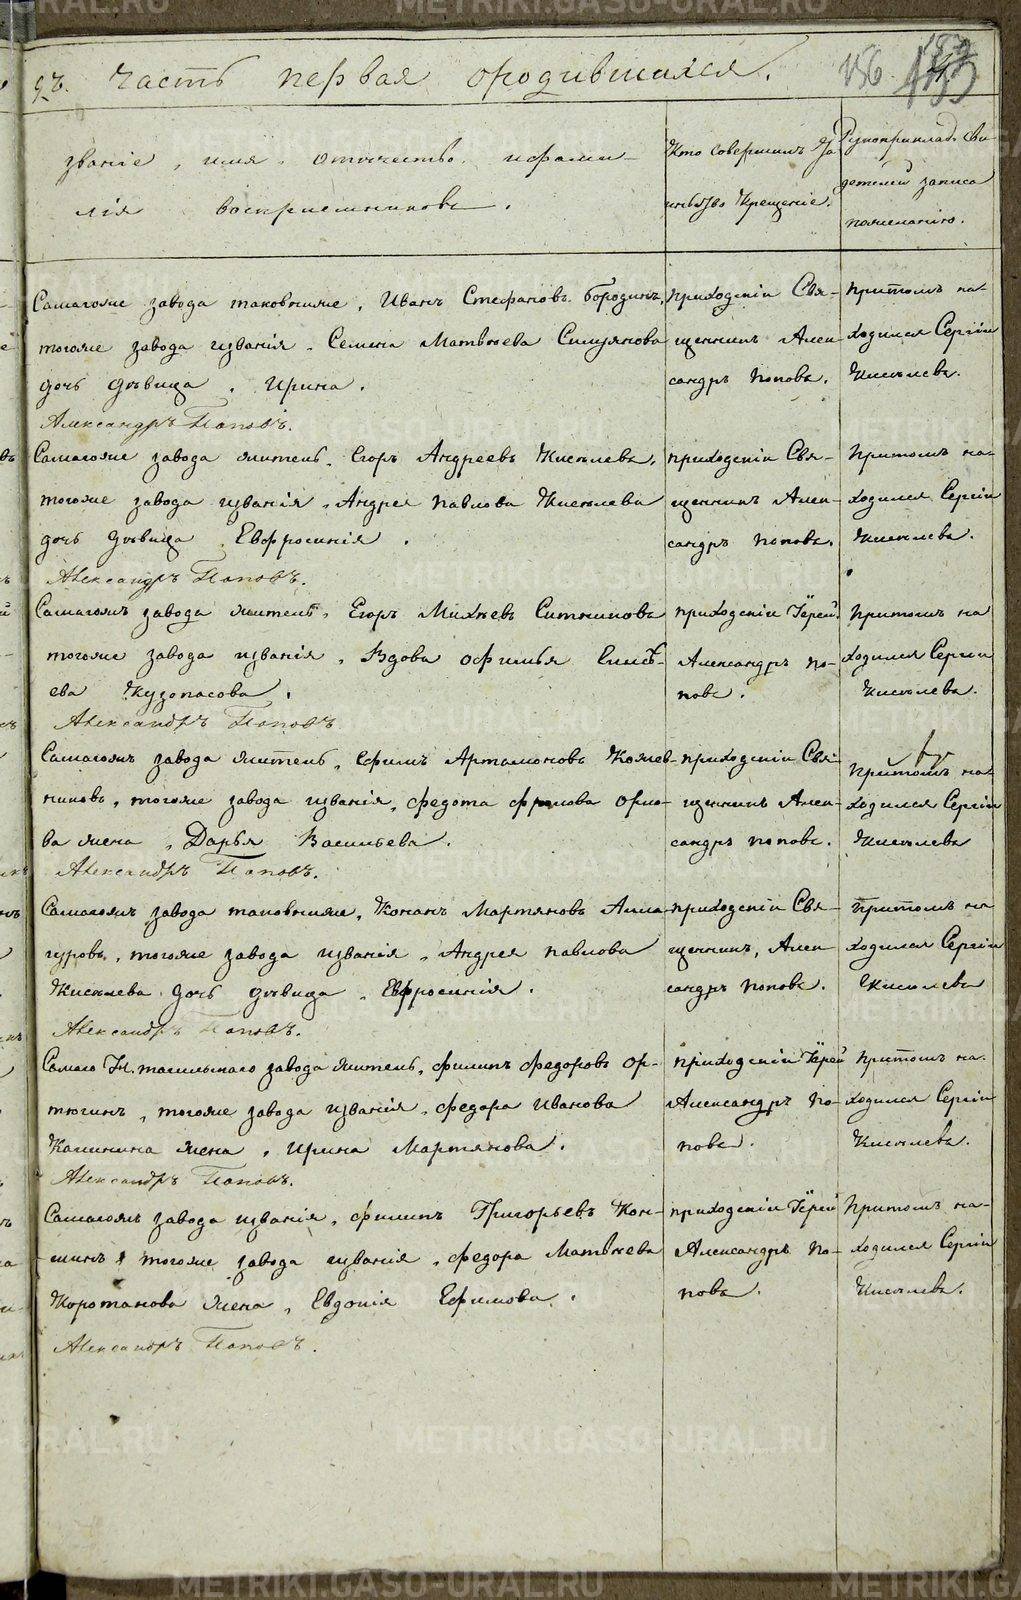 METRIKI.GASO-URAL.RU
часть первая ородившихся.
156
званiе, имя, отычество, ифами-
лiя воспрiемниковъ.
Кто совершилъ
Крещенiе.
Рукоприклад. сви-
детелей записа
пожеланiю.
Самагоже завода таковыиже, Иванъ Стефановъ Бородинъ,
тогоже завода изванiя, Семена Матвеева
дочь девица, Ирина.
Александръ Поповъ.
приходскiи Свя-
щенникъ Алек-
сандръ Поповъ.
Притомъ на-
ходился Сергiи
Киселевъ.
Самагоже завода житель, Егоръ Андреевъ Киселевъ,
тогоже завода изванiя, Андрея Павлова Киселева
дочь девица, Евфросинiя.
Александръ Поповъ.
приходскiи Свя-
щенникъ Алек-
сандръ Поповъ.
Притомъ на-
ходился Сергiи
Киселевъ.
Самагожъ завода житель, Егоръ Михеевъ Ситниковъ
тогоже завода изванiя, Вдова Офимья
ева
Александръ Поповъ
приходскiи Iерей
Александръ По-
повъ.
Притомъ на
ходился Сергiи
Киселевъ.
Самагожъ завода житель, Ефимъ Артамоновъ Кожев-
никовъ, тогоже завода изванiя, Федота Фролова Орло-
ва жена, Дарья Васильева.
Александръ Поповъ.
приходскiи Свя-
щенникъ Алек-
сандръ Поповъ.
Притомъ на-
ходился Сергiи
Киселевъ
Самагожъ завода таковыиже, Кононъ Мартяновъ
тогоже завода изванiя, Андрея Павлова
Киселева дочь девица, Евфросинiя.
Александръ Поповъ.
приходскiи Свя-
щенникъ, Алек-
сандръ Поповъ.
Притомъ на
ходился Сергiи
Киселевъ
Самаго Н. тагильскаго завода житель, Филипъ Федоровъ Ор-
тюгинъ, тогоже завода изванiя, Федора Иванова
Калинина жена, Ирина Мартянова.
Александръ Поповъ.
приходскiи Iерей
Александръ По-
повъ.
Притомъ на-
ходился Сергiи
Киселевъ.
Самагожъ завода изванiя, Филипъ Григорьевъ Кон-
шинъ, тогоже завода изванiя, Федора Матвеева
Коротанова жена, Евдокiя Ефимова.
Александръ Поповъ.
приходскiи Iерей
Александръ По-
повъ.
Притомъ на-
ходился Сергiи
Киселевъ.
METRIKI.GASO-URAL.RU
METRIKI.GASO-URAL.RU